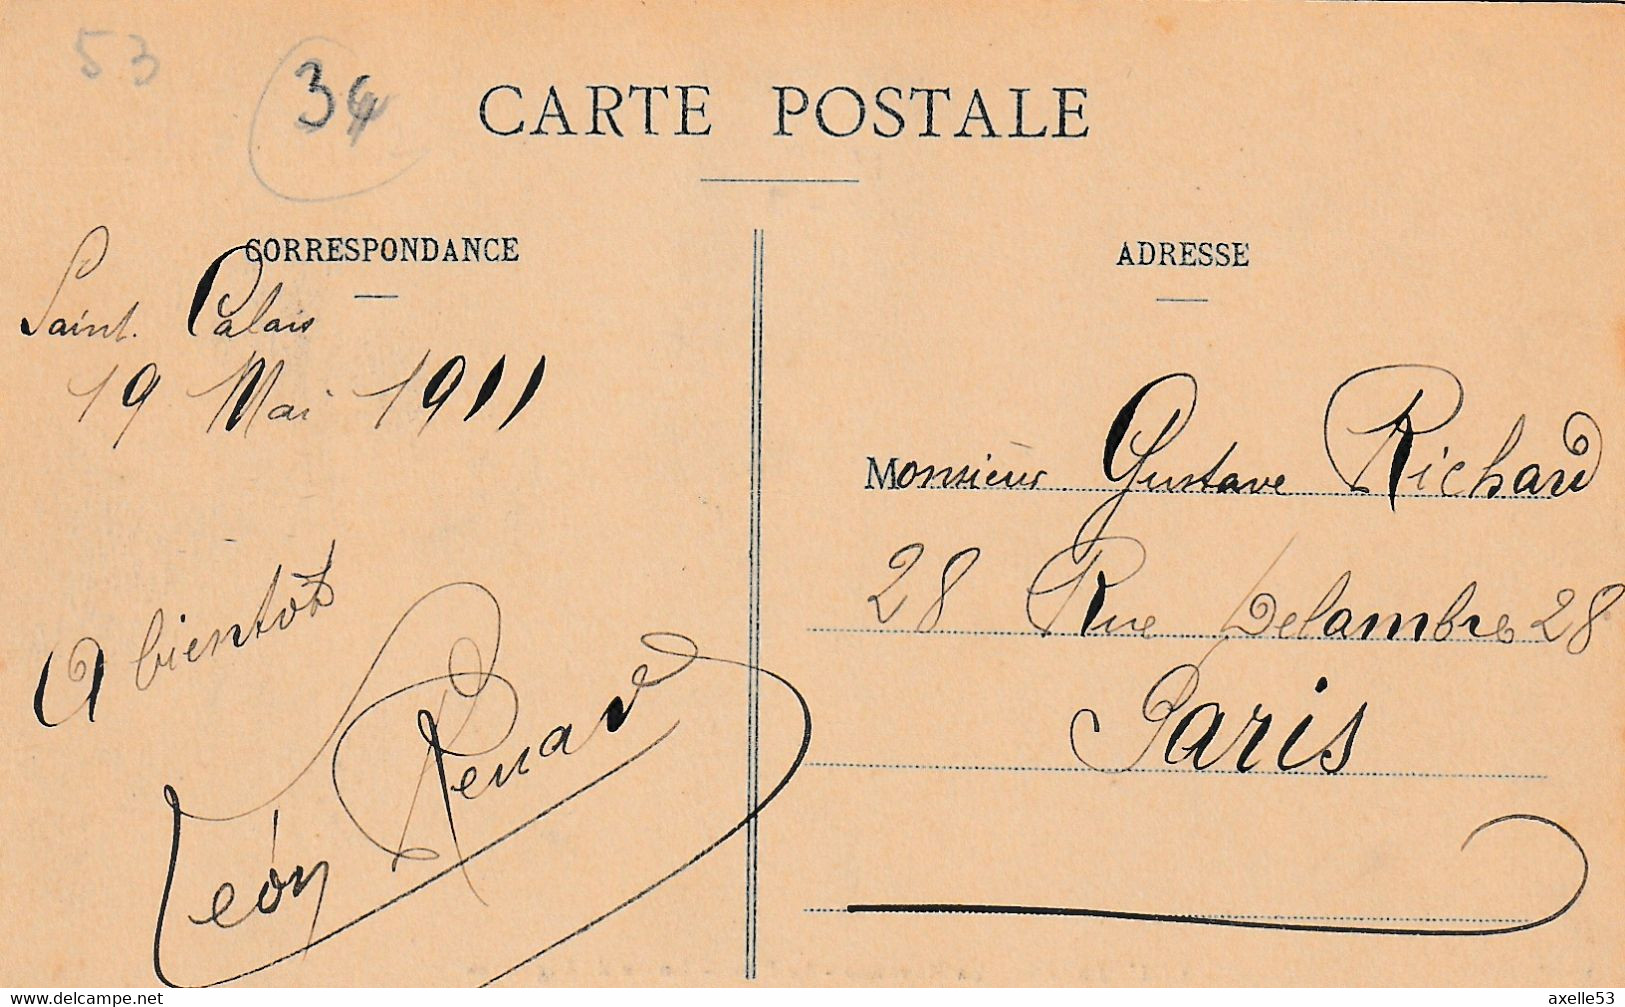 53
34
CARTE POSTALE
CORRESPONDANCE
Saint. Calais
19 Mai 1911
A bientôt
Léon Renard
ADRESSE
Monsieur Gustave Richard
28 Rue Delambre 28
Paris
www.delcampe.net
axelle53